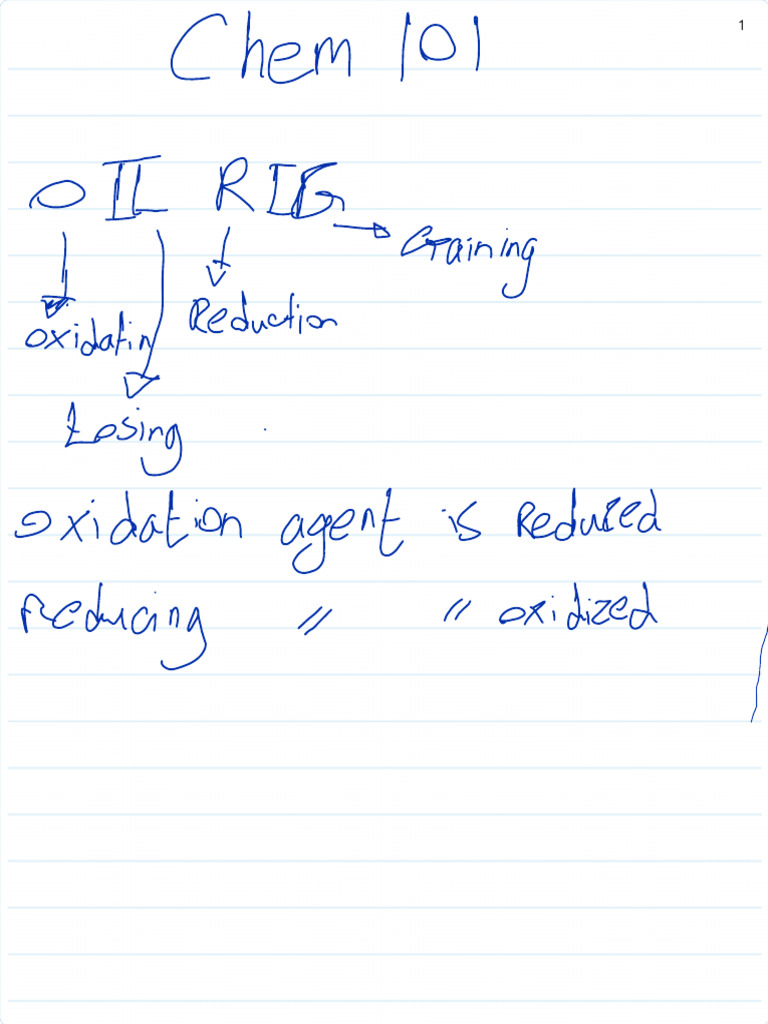 1
Chem 101
OIL RIG
Gaining
Oxidatin Reduction
Losing
Oxidation agent is Reduced
Reducing " " oxidized